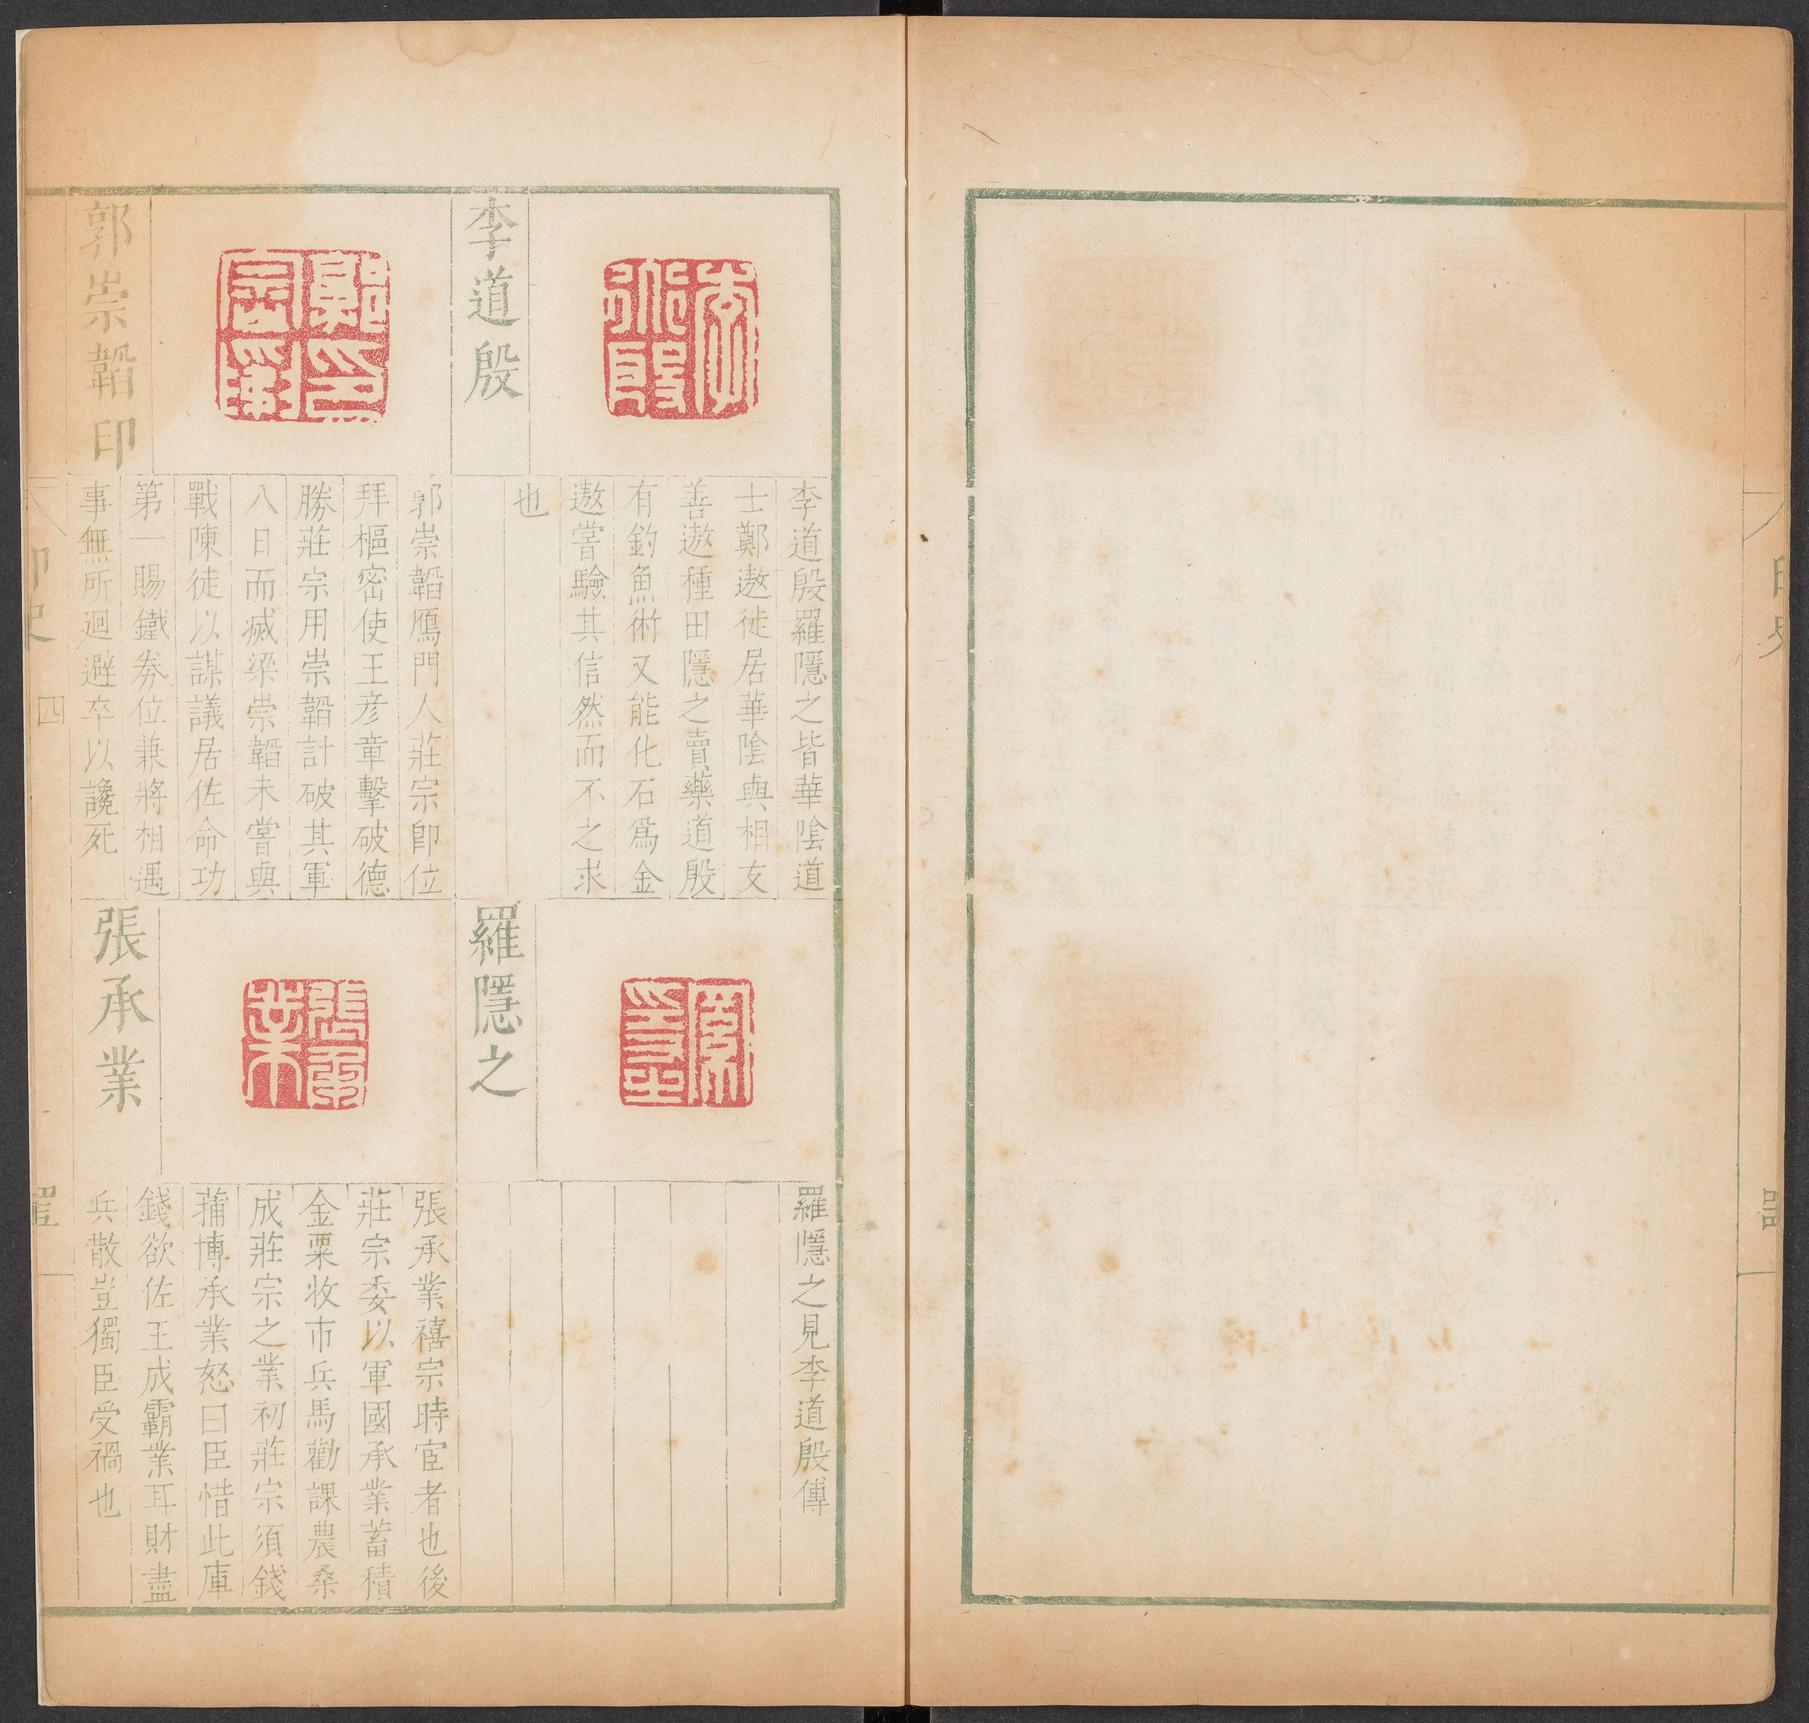 李道殷
李道殷羅隱之皆華陰道
士鄭遨徒居華陰與相友
善遨種田隱之賣藥道殷
有釣魚術又能化石爲金
遨嘗驗其信然而不之求
也
郭崇韜印
郭崇韜鴈門人莊宗卽位
拜樞密使王彦章擊破德
勝莊宗用崇韜計破其軍
八日而滅梁崇韜未嘗與
戰陳徒以謀議居佐命功
第一賜鐵券位兼將相遇
事無所廻避卒以讒死
羅隱之
羅隱之見李道殷傳
張承業
張承業禧宗時宦者也後
莊宗委以軍國承業蓄積
金粟收市兵馬勸課農桑
成莊宗之業初莊宗須錢
蒲博承業怒曰臣惜此庫
錢欲佐王成霸業耳財盡
兵散豈獨臣受禍也
印史
四